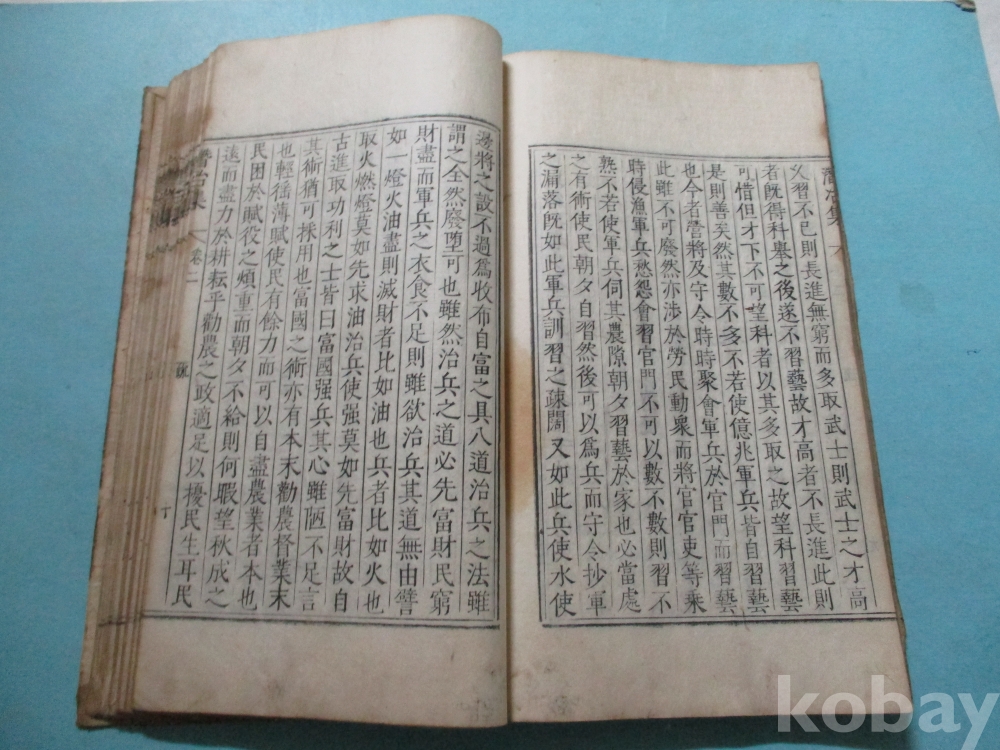 潛冶集
義習不已則長進無窮而多取武士則武士之才高
者旣得科擧之後遂不習藝故才高者不長進此則
可惜但才下不可望科者以其多取之故望科習藝
是則善矣然其數不多不若使億兆軍兵皆自習藝
也今者營將及守令時時聚會軍兵於官門而習藝
此雖不可廢然亦涉於勞民動衆而將官官吏等乘
時侵漁軍兵愁怨會習官門不可以數不數則習不
熟不若使軍兵伺其農隙朝夕習藝於家也必當處
之有術使民朝夕自習然後可以爲兵而守令抄軍
之漏落旣如此軍兵訓習之疎闊又如此兵使水使
邊將之設不過爲收布自富之具八道治兵之法雖
謂之全然廢墮可也雖然治兵之道必先富財民窮
財盡而軍兵之衣食不足則雖欲治兵其道無由譬
如一燈火油盡則滅財者比如油也兵者比如火也
取火燃燈莫如先求油治兵使强莫如先富財故自
古進取功利之士皆曰富國强兵其心雖陋不足言
其術猶可採用也富國之術亦有本末勸農督業末
也輕徭薄賦使民有餘力而可以自盡農業者本也
民困於賦役之煩重而朝夕不給則何暇望秋成之
遠而盡力於耕耘乎勸農之政適足以擾民生耳民
潛冶集 卷二